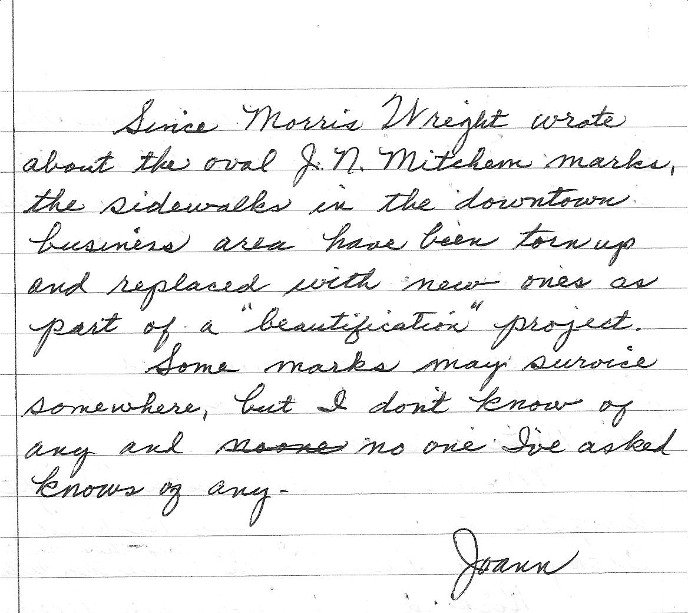 Since Morris Wright wrote
about the oval J. N. Mitchem marks,
the sidewalks in the downtown
business area have been torn up
and replaced with new ones as
part of a "beautification" project.
Some marks may survive
somewhere, but I don't know of
any and noone no one I've asked
knows of any-
Joann